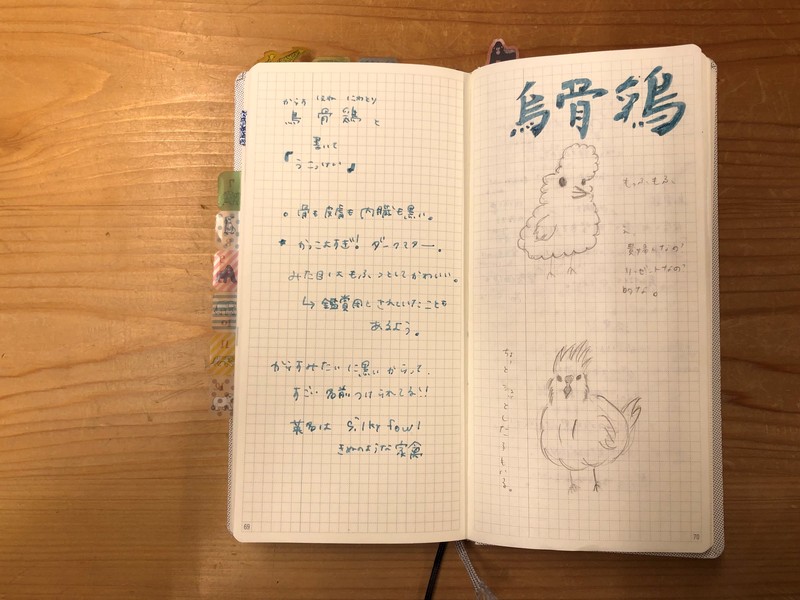 からす ほね にわとり
烏 骨 鶏 と
書いて
「うこっけい」
○ 骨も皮膚も内臓も黒い。
かっこよすぎ！ダークマター。
みた目はもふっとしてかわいい。
↳ 鑑賞用とされていたことも
あるよう。
からすみたいに黒いからって、
すごい名前つけられてる!!
英名は Silky fowl
きぬのような家禽
69
烏骨鶏
もふもふ
貴族なの?
的な。
ちょっと
としたトリもいる。
70